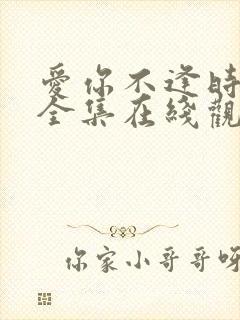 愛你不逢時
全集在綫觀
你家小哥哥呀